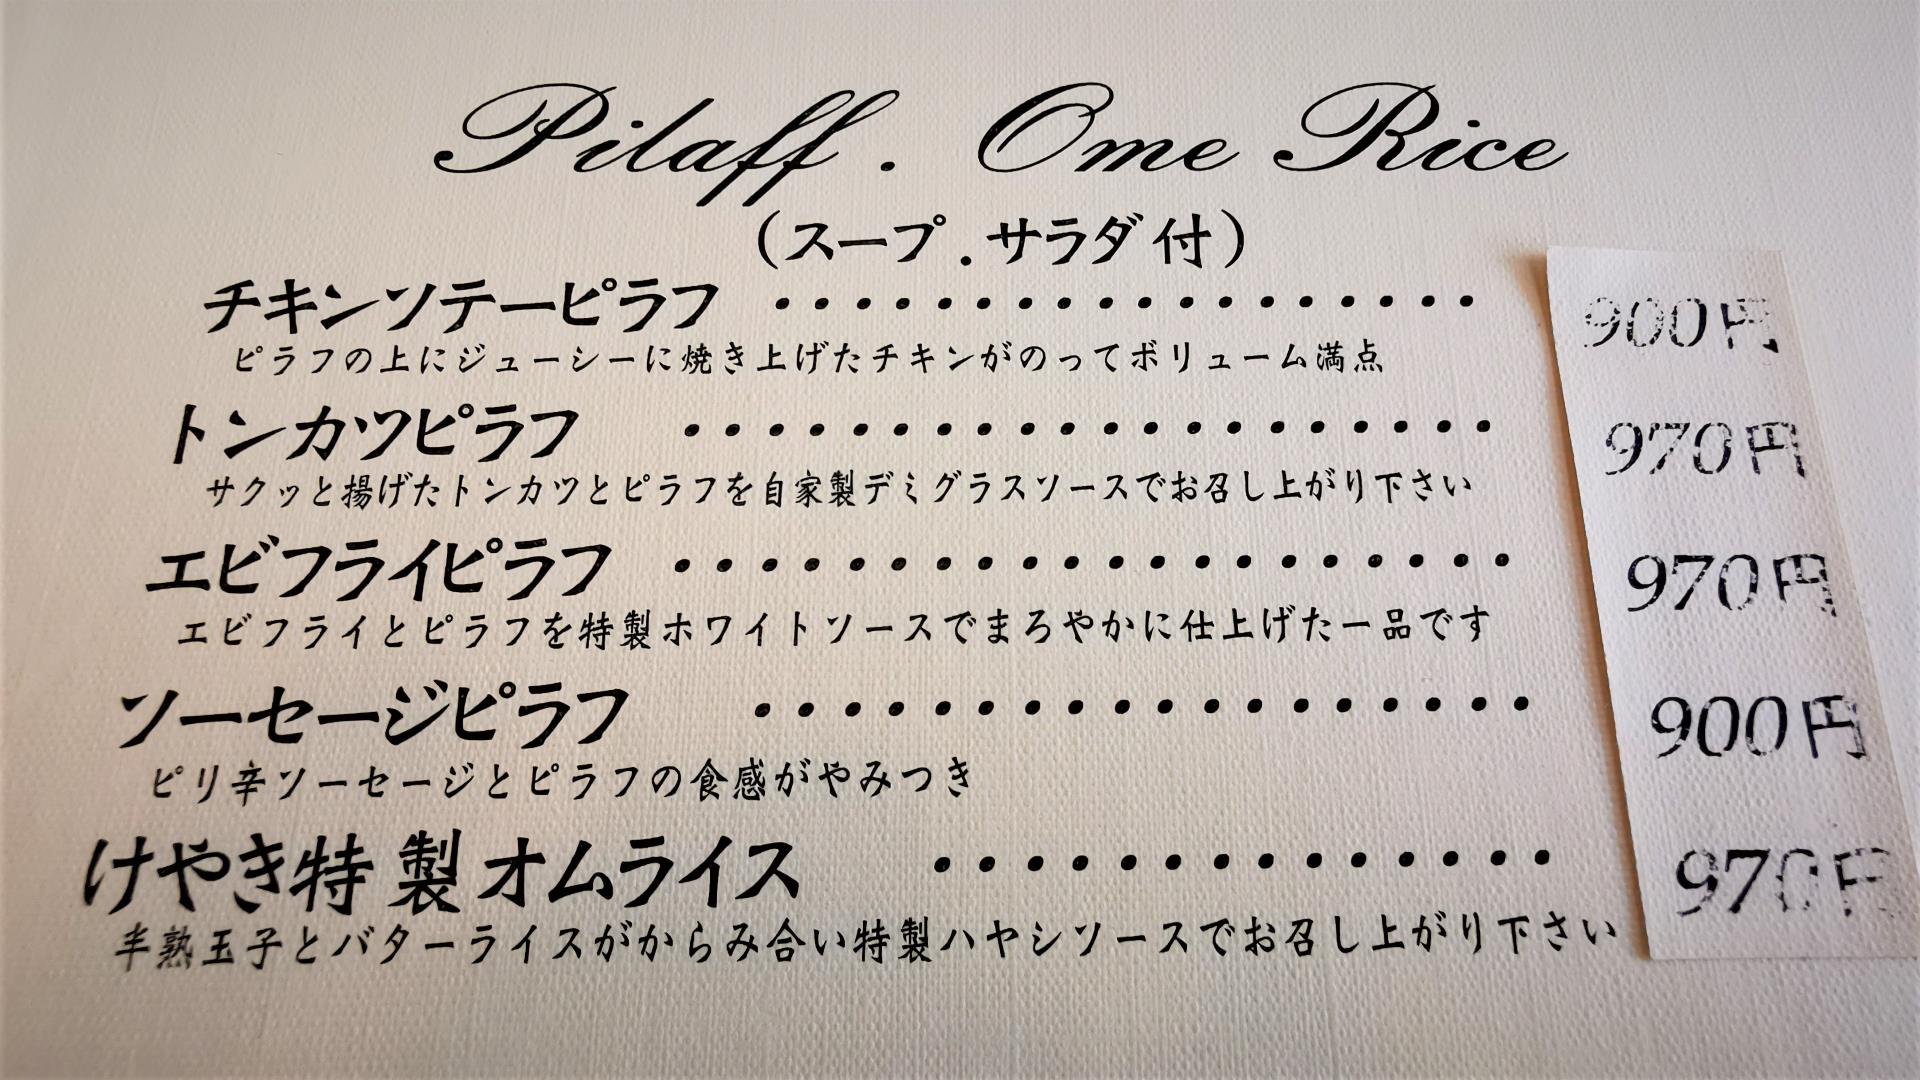 Pilaff . Ome Rice
(スープ.サラダ付)
チキンソテーピラフ ・・・・・・・・・・・・・・・・・・ 900円
ピラフの上にジューシーに焼き上げたチキンがのってボリューム満点
トンカツピラフ ・・・・・・・・・・・・・・・・・・・・ 970円
サクッと揚げたトンカツとピラフを自家製デミグラスソースでお召し上がり下さい
エビフライピラフ ・・・・・・・・・・・・・・・・・・・・ 970円
エビフライとピラフを特製ホワイトソースでまろやかに仕上げた一品です
ソーセージピラフ ・・・・・・・・・・・・・・・・・・ 900円
ピリ辛ソーセージとピラフの食感がやみつき
けやき特製オムライス ・・・・・・・・・・・・・・ 970円
半熟玉子とバターライスがからみ合い特製ハヤシソースでお召し上がり下さい